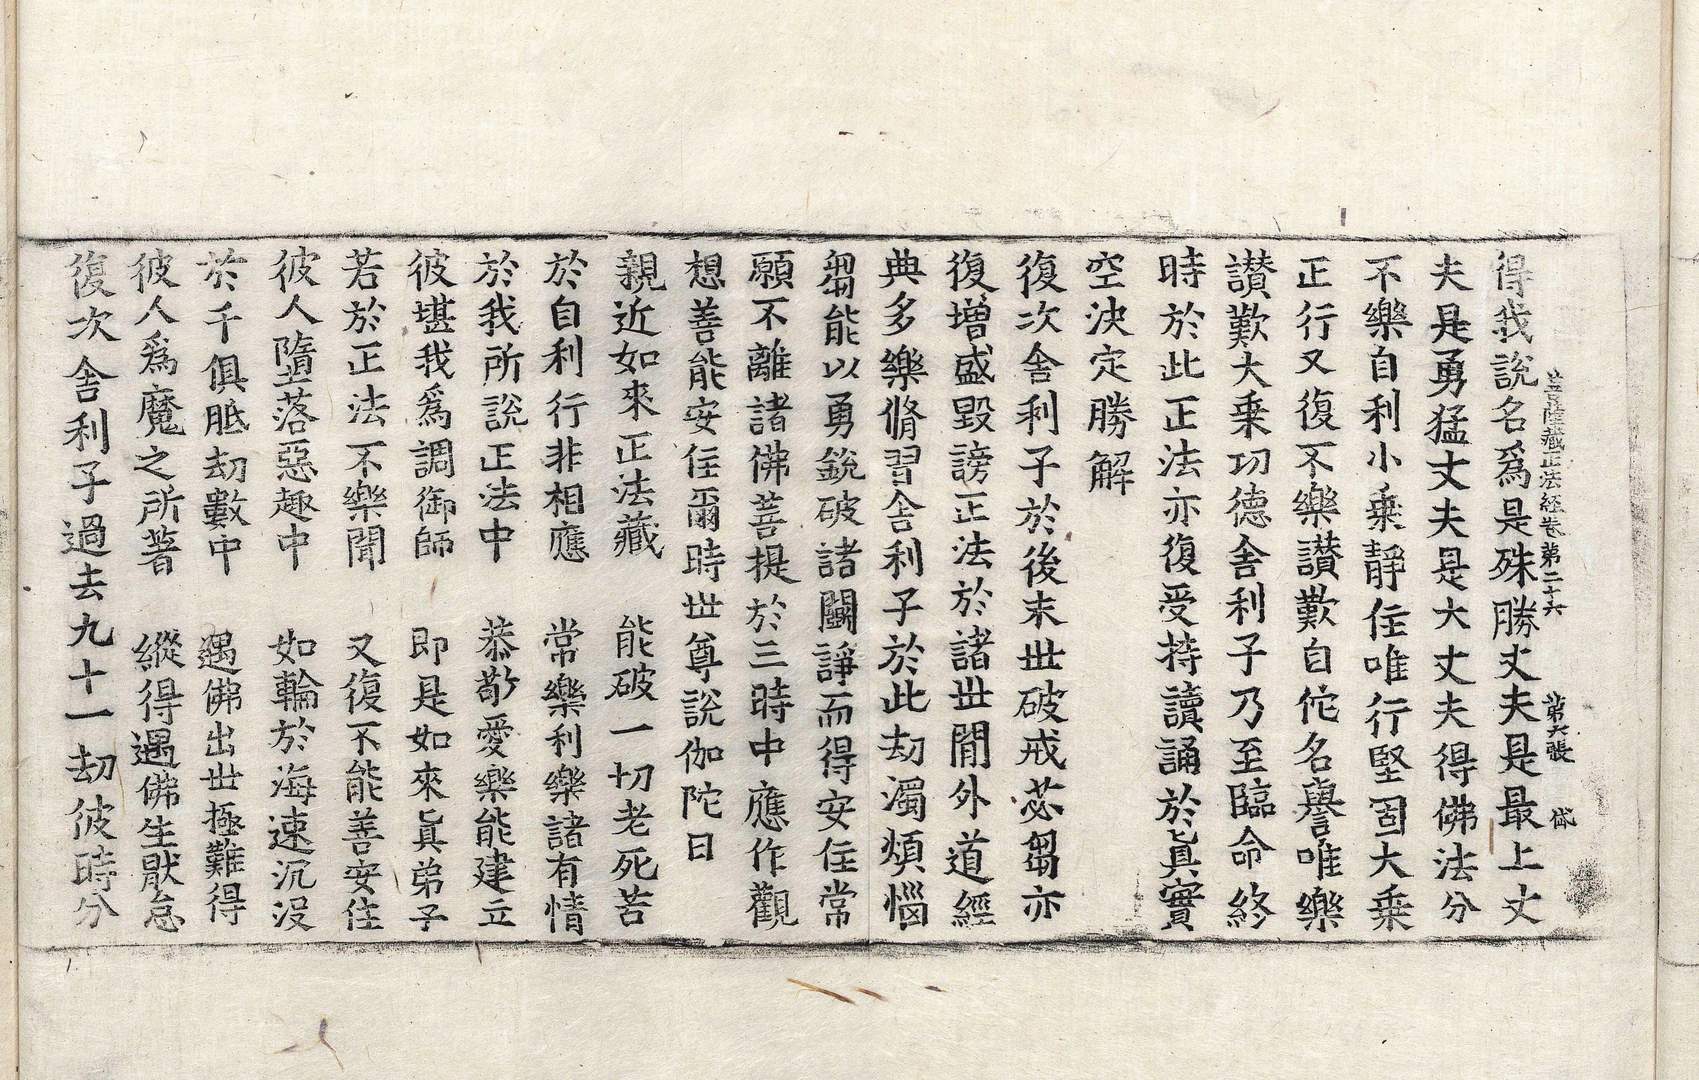 菩薩藏正法經卷第二十六 第六張 岱
得我說名爲是殊勝丈夫是最上丈
夫是勇猛丈夫是大丈夫得佛法分
不樂自利小乗靜住唯行堅固大乗
正行又復不樂讃歎自佗名譽唯樂
讃歎大乗功德舍利子乃至臨命終
時於此正法亦復受持讀誦於眞實
空決定勝解
復次舍利子於後末世破戒苾芻亦
復增盛毀謗正法於諸世閒外道經
典多樂脩習舍利子於此劫濁煩惱
芻能以勇銳破諸鬪諍而得安住常
願不離諸佛菩提於三時中應作觀
想善能安住爾時世尊說伽陀曰
親近如來正法藏 能破一切老死苦
於自利行非相應 常樂利樂諸有情
於我所說正法中 恭敬愛樂能建立
彼堪我爲調御師 即是如來眞弟子
若於正法不樂聞 又復不能善安住
彼人墮落惡趣中 如輪於海速沉没
於千俱胝劫數中 遇佛出世極難得
彼人爲魔之所著 縱得遇佛生厭怠
復次舍利子過去九十一劫彼時分